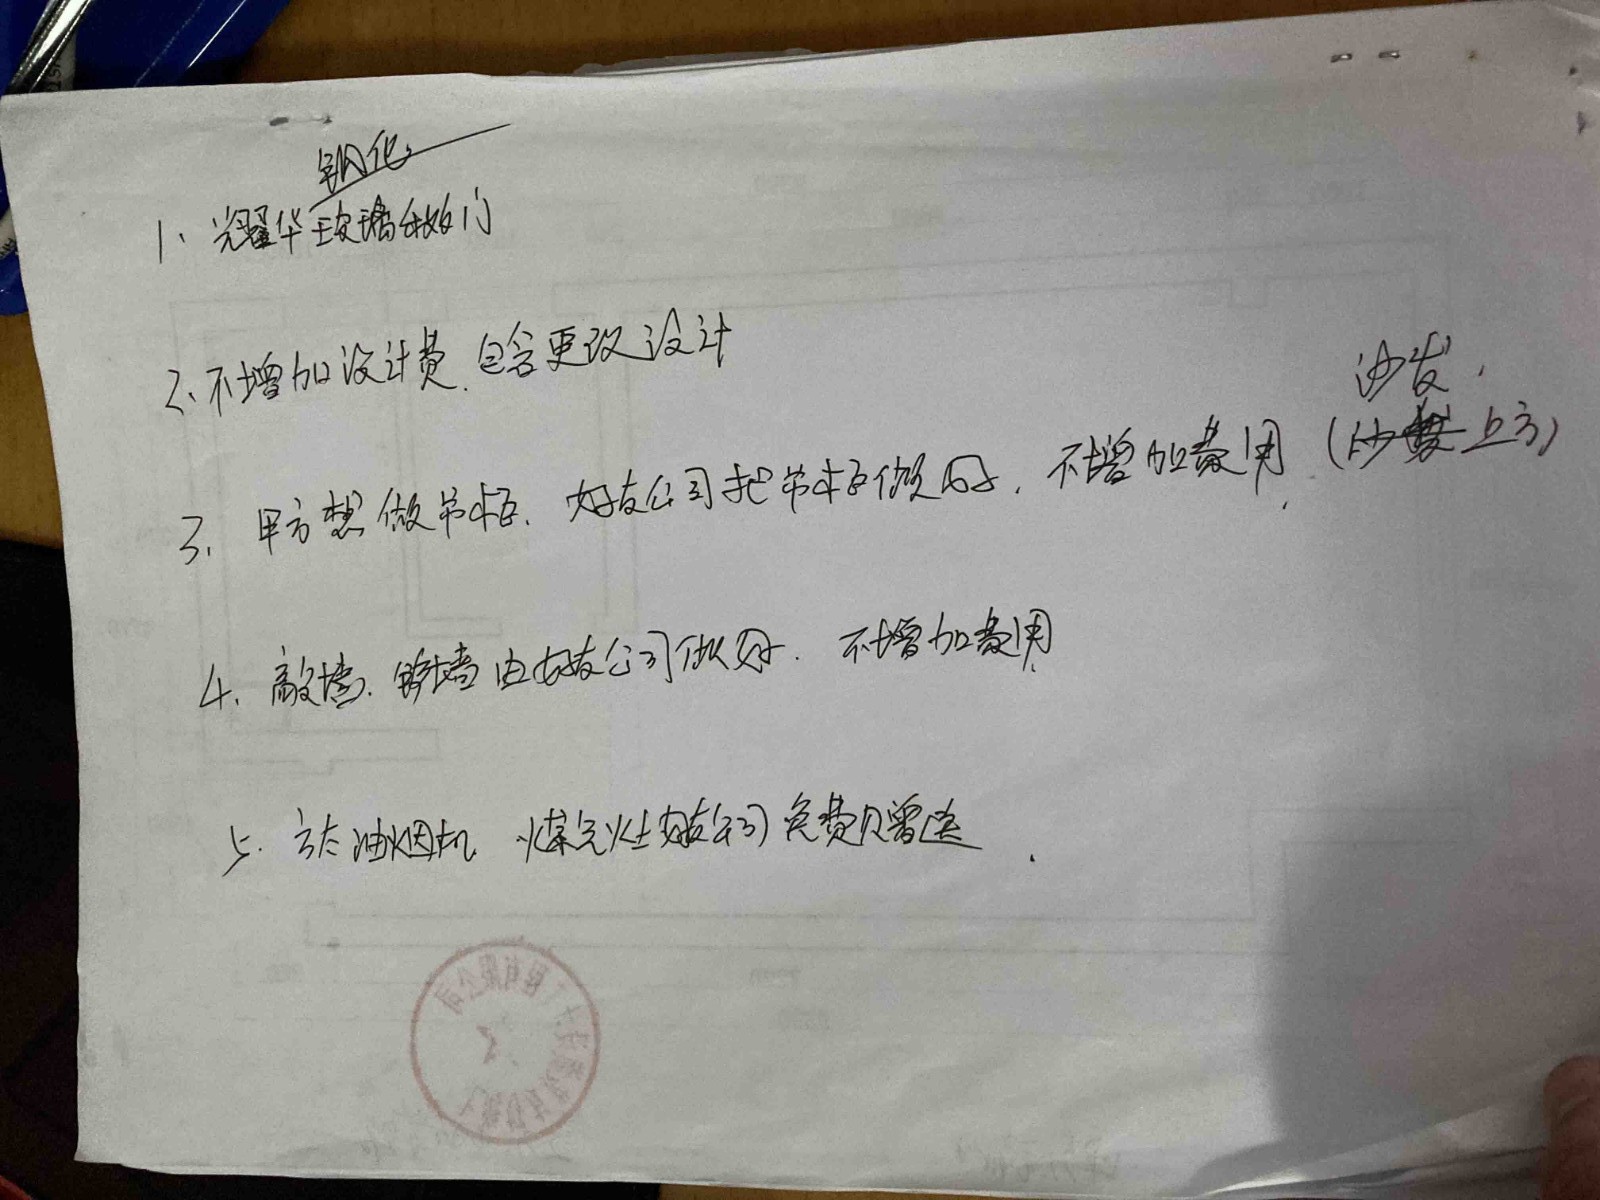 钢化
1、耀华玻璃做门
2、不增加设计费.包含更改设计
沙发.
3、甲方想做吊柜.好友公司把吊柜做好.不增加费用(上方)
4、敲墙.砌墙由好友公司做好.不增加费用
5.方太油烟机.煤气灶好友公司免费赠送.
有限公司